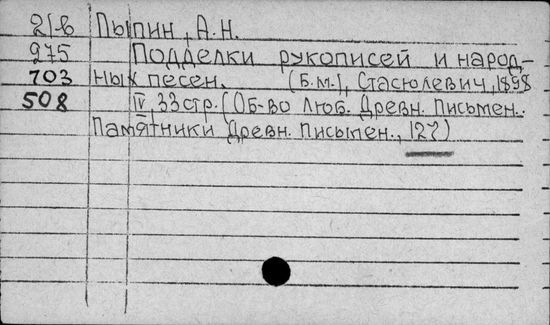 21-в Пыпин, А.Н.
975 Подделки рукописей и народ-
703 ных песен. (Б.м.), Стасюлевич, 1898
508 IV, 33 стр. (Об-во люб. Древн. Письмен.
Памятники Древн. Письмен., 127)